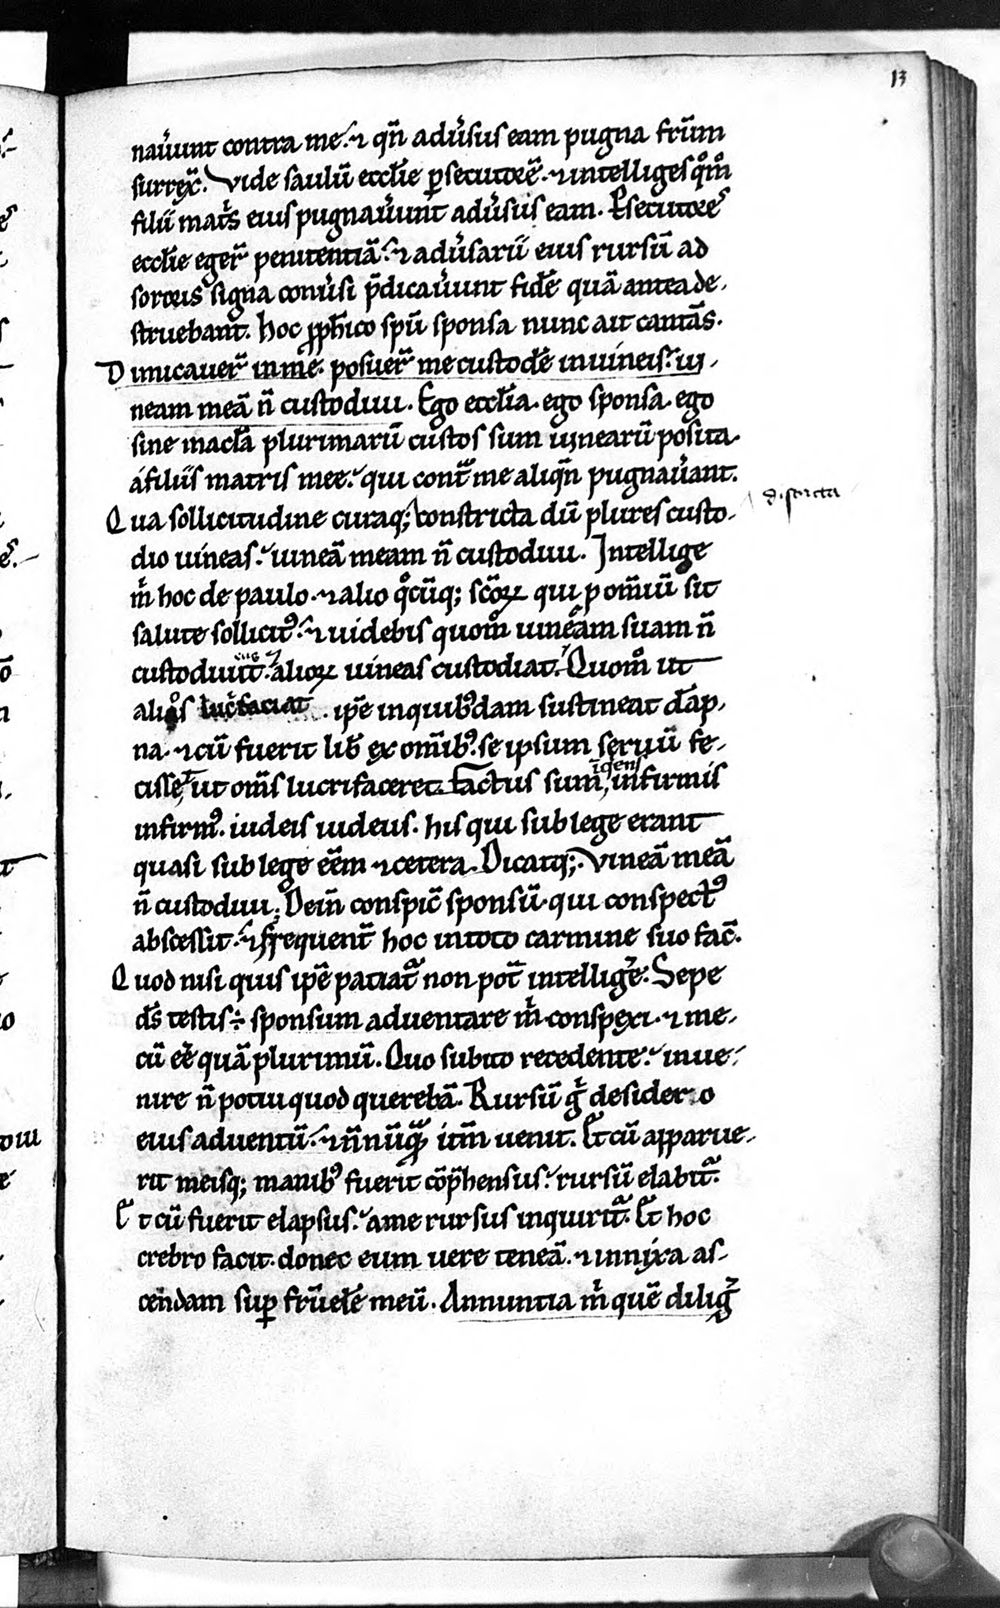 13
nau͛unt contra me. ⁊ qn̄ adu͛sus eam pugna frūm
surrex̄. Vide saulū eccl̄ie ꝑsecutorē. ⁊ intelliges qͦm̊
filii matr̄s eius pugnau͛unt adu͛sus eam. Ꝑsecutores
eccl̄ie egerͭ penitentiā. ⁊ adu͛sarii eius rursū ad
sororis signa conu͛si p̄dicau͛unt fidē quā antea de-
struebant. hoc ꝓph̄ico spū sponsa nunc ait cantās.
Dimicauerͭ in me. posuerͭ me custodē in uineis. ui-
neam meā n̄ custodiui. Ego eccl̄ia. ego sponsa. ego
sine macl̄a plurimarū custos sum uinearū posita.
a filiis matris mee. qui contͣ me aliqn̄ pugnau͛ant.
Qua sollicitudine curaq; constricta dū plures custo-
d.stricta
dio uineas. uineā meam n̄ custodiui. Intellige
m̄ hoc de paulo. ⁊ alio qͦcūq; scōꝝ qui ꝓ om̄iū sit
salute sollicitꝰ. ⁊ uidebis quom̊ uineam suam n̄
custodiuit. alioꝝ uineas custodiat. Quom̊ ut
alios luc̄faciat. ip̄e in quibꝰdam sustineat dāp-
na. ⁊ cū fuerit lib̄ ex om̄ibꝰ. se ipsum seruū fe-
cisse. ut om̄s lucrifaceret. Factus sum, infirmis
infirmꝰ. iudeis iudeus. his qui sub lege erant
quasi sub lege eēm ⁊ cetera. Dicatq;. Vineā meā
n̄ custodiui. Dein̄ conspic̄ sponsū. qui conspectꝰ
abscessit. ⁊ frequent̄ hoc in toto carmine suo fac̄.
Quod nisi quis ip̄e patiatͬ non pot̄ intelligͤe. Sepe
ds̄ testis ÷ sponsum aduentare m̄ conspexi. ⁊ me-
cū eē quā plurimū. Quo subito recedente. inue-
nire n̄ potui quod querebā. Rursū g̊ desidero
eius aduentū. ⁊ nn̄ūqͣꝫ itm̄ uenit. Et cū apparue-
rit meisq; manibꝰ fuerit cōp̄hensus. rursū elabitͬ.
Et cū fuerit elapsus. a me rursus inquiritͬ. Et hoc
crebro facit. donec eum uere teneā. ⁊ innixa as-
cendam suꝑ frūelē meū. Annuntia m̄ quē diligͭ